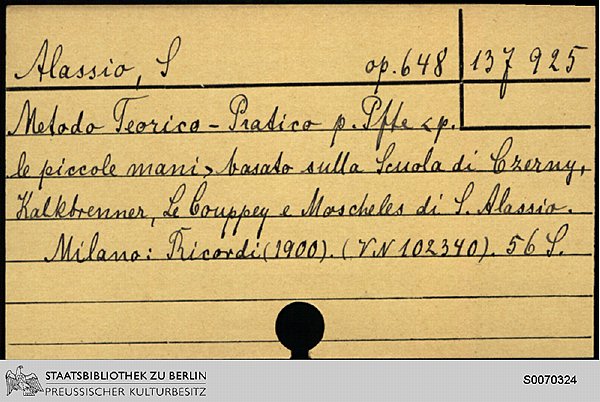 Alassio, S op. 648 137 925
Metodo Teorico-Pratico p. Pffe <p.
le piccole mani> basato sulla Scuola di Czerny,
Kalkbrenner, Le Couppey e Moscheles di S. Alassio.
Milano: Ricordi (1900). (VN 102340). 56 S.
STAATSBIBLIOTHEK ZU BERLIN
PREUSSISCHER KULTURBESITZ
S0070324